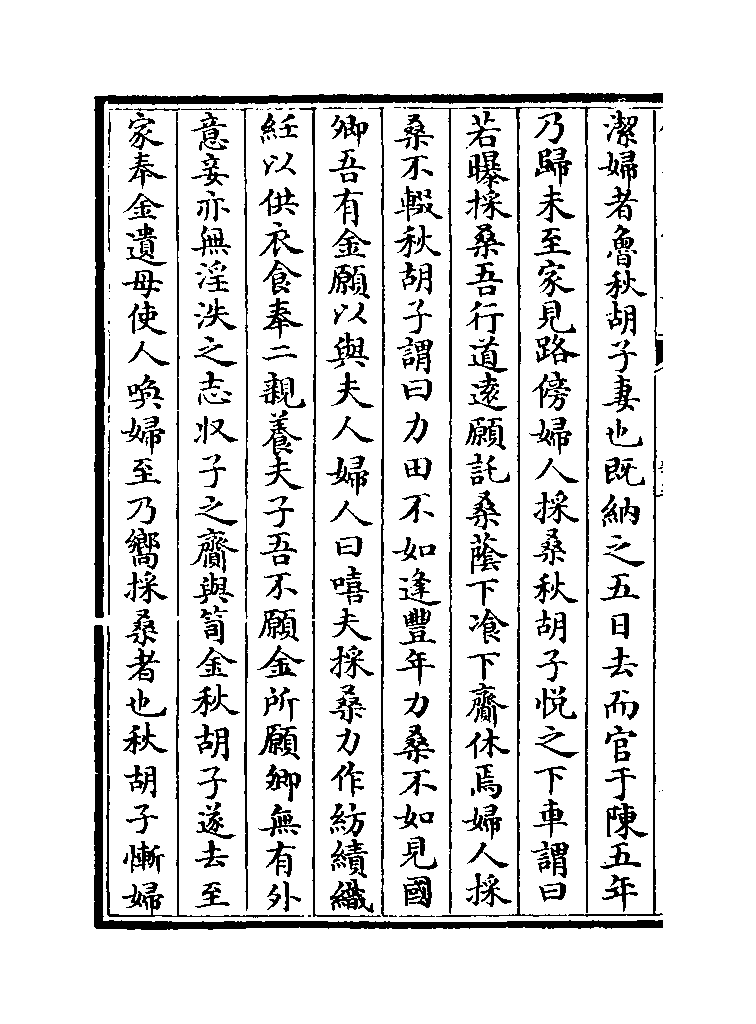 潔婦者魯秋胡子妻也既納之五日去而官于陳五年
乃歸未至家見路傍婦人採桑秋胡子悅之下車謂曰
若曝採桑吾行道遠願託桑蔭下飡下齎休焉婦人採
桑不輟秋胡子謂曰力田不如逢豐年力桑不如見國
卿吾有金願以與夫人婦人曰嘻夫採桑力作紡績織
紝以供衣食奉二親養夫子吾不願金所願卿無有外
意妾亦無淫泆之志収子之齎與笥金秋胡子遂去至
家奉金遺母使人喚婦至乃嚮採桑者也秋胡子慚婦